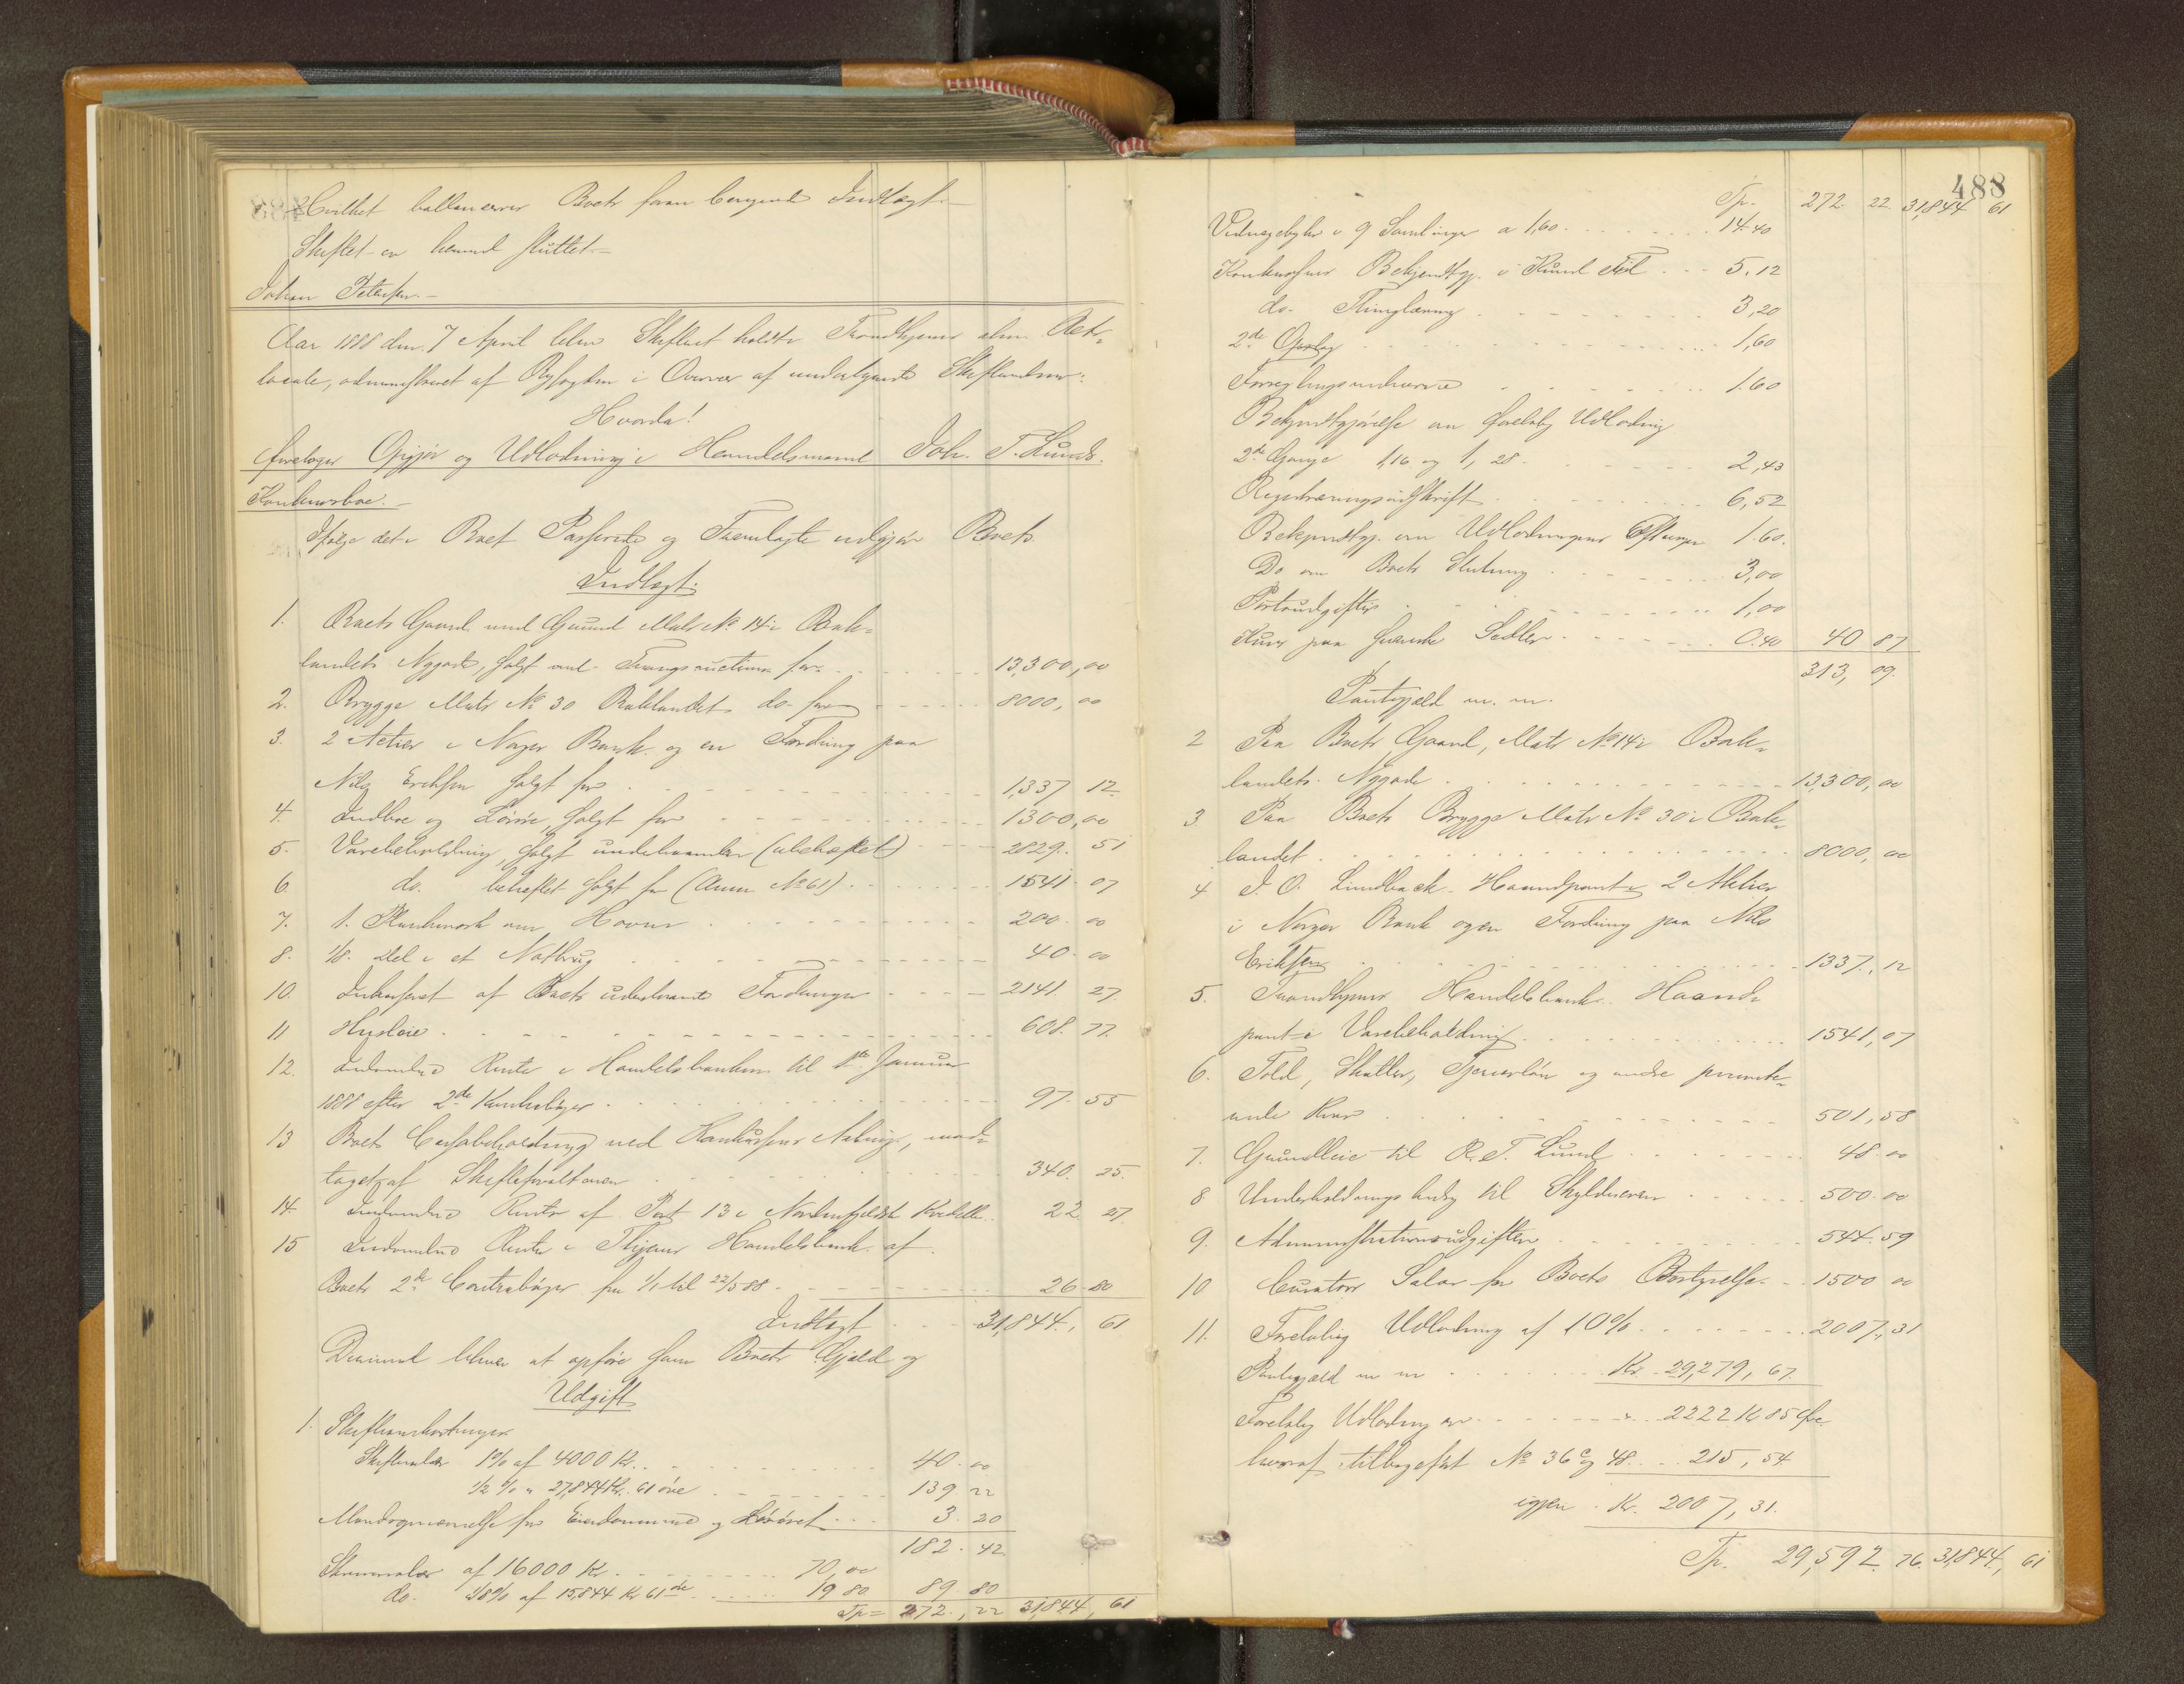 Hvilket ballancerer Boets foran beregnede Indtægt.—
Skiftet er hermed sluttet.—
Johan Petersen.—
Aar 1888 den 7 April blev Skifteret holdt i Trondhjems alm. Rets-
locale, administreret af Byfogden i Overvær af undertegnede Skiftevidner:
Hvorda!
foretoges Opgjør og Udlodning i Handelsmand Joh. T. Lunds
Konkursboe.—
Ifølge det i Boet Passerede og Fremlagte udgjør Boets
Indtægt:
1. Boets Gaard med Grund Matr. No 14 i Bak-
landets Nygade, solgt ved Tvangsauction for 13,300,00
2. Brygge Matr No 30 Baklandet do. for 8000,00
3. 2 Actier i Norges Bank og en Fordring paa
Nils Eriksen solgt for 1,337 12
4. Indboe og Løsøre, solgt for 1300,00
5. Varebeholdning, solgt underhaanden (ubehæftet) 2829. 51
6. do. behæftet solgt for (Anm No 61) 1541. 07
7. 1. om Havnen 200. 00
8. 1/8. Del i et Notbrug 40. 00
10. Indkasseret af Boets udestaaende Fordringer 2141. 27
11 Husleie 608. 77.
12. Indvundne Renter i Handelsbanken til 1ste Januar
1888 efter 2de Kontrabøger 97. 55
13 Boets Cassabeholdning ved Konkursens Aabning, mod-
taget af Skifteforvalteren 340. 25.
14. Indvundne Renter af Post 13 i Nordenfjeldske Kreditb. 22. 27.
15 Indvundne Renter i Thjems Handelsbank af
Boets 2de Contrabøger fra 1/1 til 22/3 88. 26. 80
Indtægt 31,844., 61
Derimod bliver at opføre som Boets Gjæld og
Udgift
1. Skifteomkostninger
Skiftesalær 1% af 4000 Kr. 40. 00
1/2 % " 27,844 Kr. 61 øre 139 22
Mandsopnævnelse for Eiendommene og Løsøret 3. 20
182. 42
af 16000 Kr. 70,00
do. 1/8% af 15,844 Kr 61 øre 19 80 89 80
Tp= 272., 22 31,844, 61
488
Tp. 272. 22 31,844 61
Vidnegebyhr i 9 Samlinger a 1,60. 14.40
Konkursens Bekjendtgj. i Kund Tid 5.12
do. Thinglæsning 3,20
2de Opslag 1,60
Forseglingsvidnerne 1.60
Bekjendtgjørelse om foreløbig Udlodning
2de Gange 1,16 og 1,28. 2,43
Registreringsudskrift 6,52
Bekjendtgj. om Udlodningens Slutning 1.60.
Do om Boets Slutning 3,00
Portoudgifter 1,00
Kurs paa svenske Sedler 0.40 40 87
313, 09.
Pantegjæld m. m.
2 Paa Boets Gaard, Matr No 14 i Bak-
landets Nygade 13,300,00
3. Paa Boets Brygge Matr No 30 i Bak-
landet 8000, 00
4 J. O. Lundback Haandpant i 2 Aktier
i Norges Bank og en Fordring paa Nils
Eriksen 1337., 12
5. Trondhjems Handelsbank Haand-
pant i Varebeholdning 1541, 07
6. Told, Skatter, Tjenerløn og andre privile-
501,58
7. Grundleie til R. T. Lund 48. 00
8 Underholdnings bidrag til Skyldneren 500. 00
9. Administrationsudgifter 544. 59
10 Curators Salar for Boets Bestyrelse 1500 00
11. Foreløbig Udlodning af 10% 2007., 31
Pantegjæld m m Kr. 29,279, 67
Foreløbig Udlodning 2222 Kr 85 Øre
hvoraf tilbageført No 36 og 48 215, 54
igjen Kr. 2007, 31.
Tp. 29,592. 76. 31,844., 61